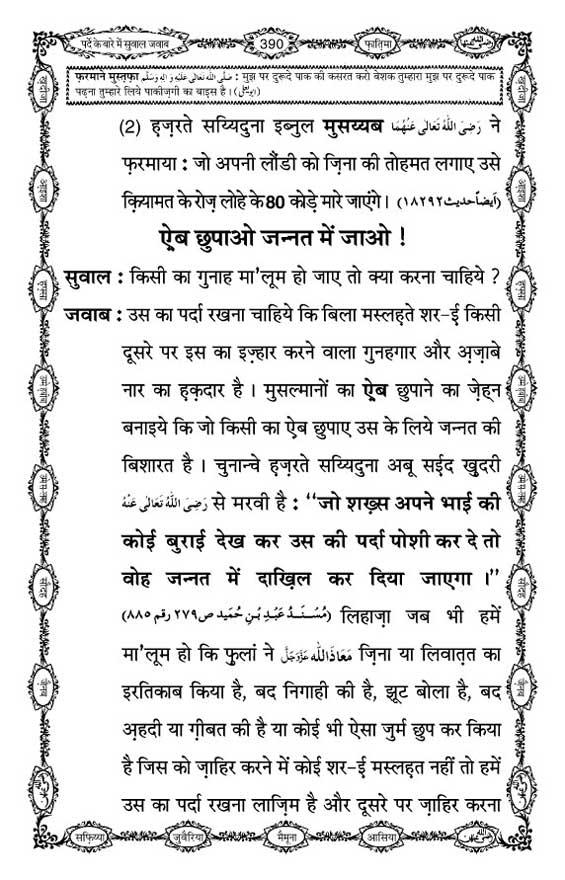 पर्दे के बारे में सुवाल जवाब
390
फ़ातिमा
फ़रमाने मुस्तफ़ा صَلَّى اللّٰهُ تَعَالٰى عَلَيْهِ وَاٰلِهٖ وَسَلَّم : मुझ पर दुरूदे पाक की कसरत करो बेशक तुम्हारा मुझ पर दुरूदे पाक
पढ़ना तुम्हारे लिये पाकीज़गी का बाइस है । (ابو يعلى)
(2) हज़रते सय्यिदुना इब्नुल मुसय्यब رَضِیَ اللّٰهُ تَعَالٰی عَنْهُمَا ने
फ़रमाया : जो अपनी लौंडी को ज़िना की तोहमत लगाए उसे
क़ियामत के रोज़ लोहे के 80 कोड़े मारे जाएंगे । (اَيضاً حديث ١٨٢٩٢)
ऐ़ब छुपाओ जन्नत में जाओ !
सुवाल : किसी का गुनाह मा'लूम हो जाए तो क्या करना चाहिये ?
जवाब : उस का पर्दा रखना चाहिये कि बिला मस्लह़ते शर-ई किसी
दूसरे पर इस का इज़्हार करने वाला गुनहगार और अ़ज़ाबे
नार का ह़क़दार है । मुसल्मानों का ऐ़ब छुपाने का ज़ेहन
बनाइये कि जो किसी का ऐब छुपाए उस के लिये जन्नत की
बिशारत है । चुनान्चे हज़रते सय्यिदुना अबू सईद ख़ुदरी
رَضِیَ اللّٰهُ تَعَالٰی عَنْهُ से मरवी है : ‘‘जो शख़्स अपने भाई की
कोई बुराई देख कर उस की पर्दा पोशी कर दे तो
वोह जन्नत में दाख़िल कर दिया जाएगा ।’’
(مُسْنَدُ عَبْد بِنْ حُمَيد ص ٢٧٩ رقم ٨٨٥) लिहाज़ा जब भी हमें
मा'लूम हो कि फुलां ने مَعَاذَ اللّٰه عَزَّوَجَلَّ ज़िना या लिवात़त का
इरतिकाब किया है, बद निगाही की है, झूट बोला है, बद
अ़हदी या ग़ीबत की है या कोई भी ऐसा जुर्म छुप कर किया
है जिस को ज़ाहिर करने में कोई शर-ई मस्लहत नहीं तो हमें
उस का पर्दा रखना लाज़िम है और दूसरे पर ज़ाहिर करना
सफ़िय्या
जुवैरिया
मैमूना
आसिया